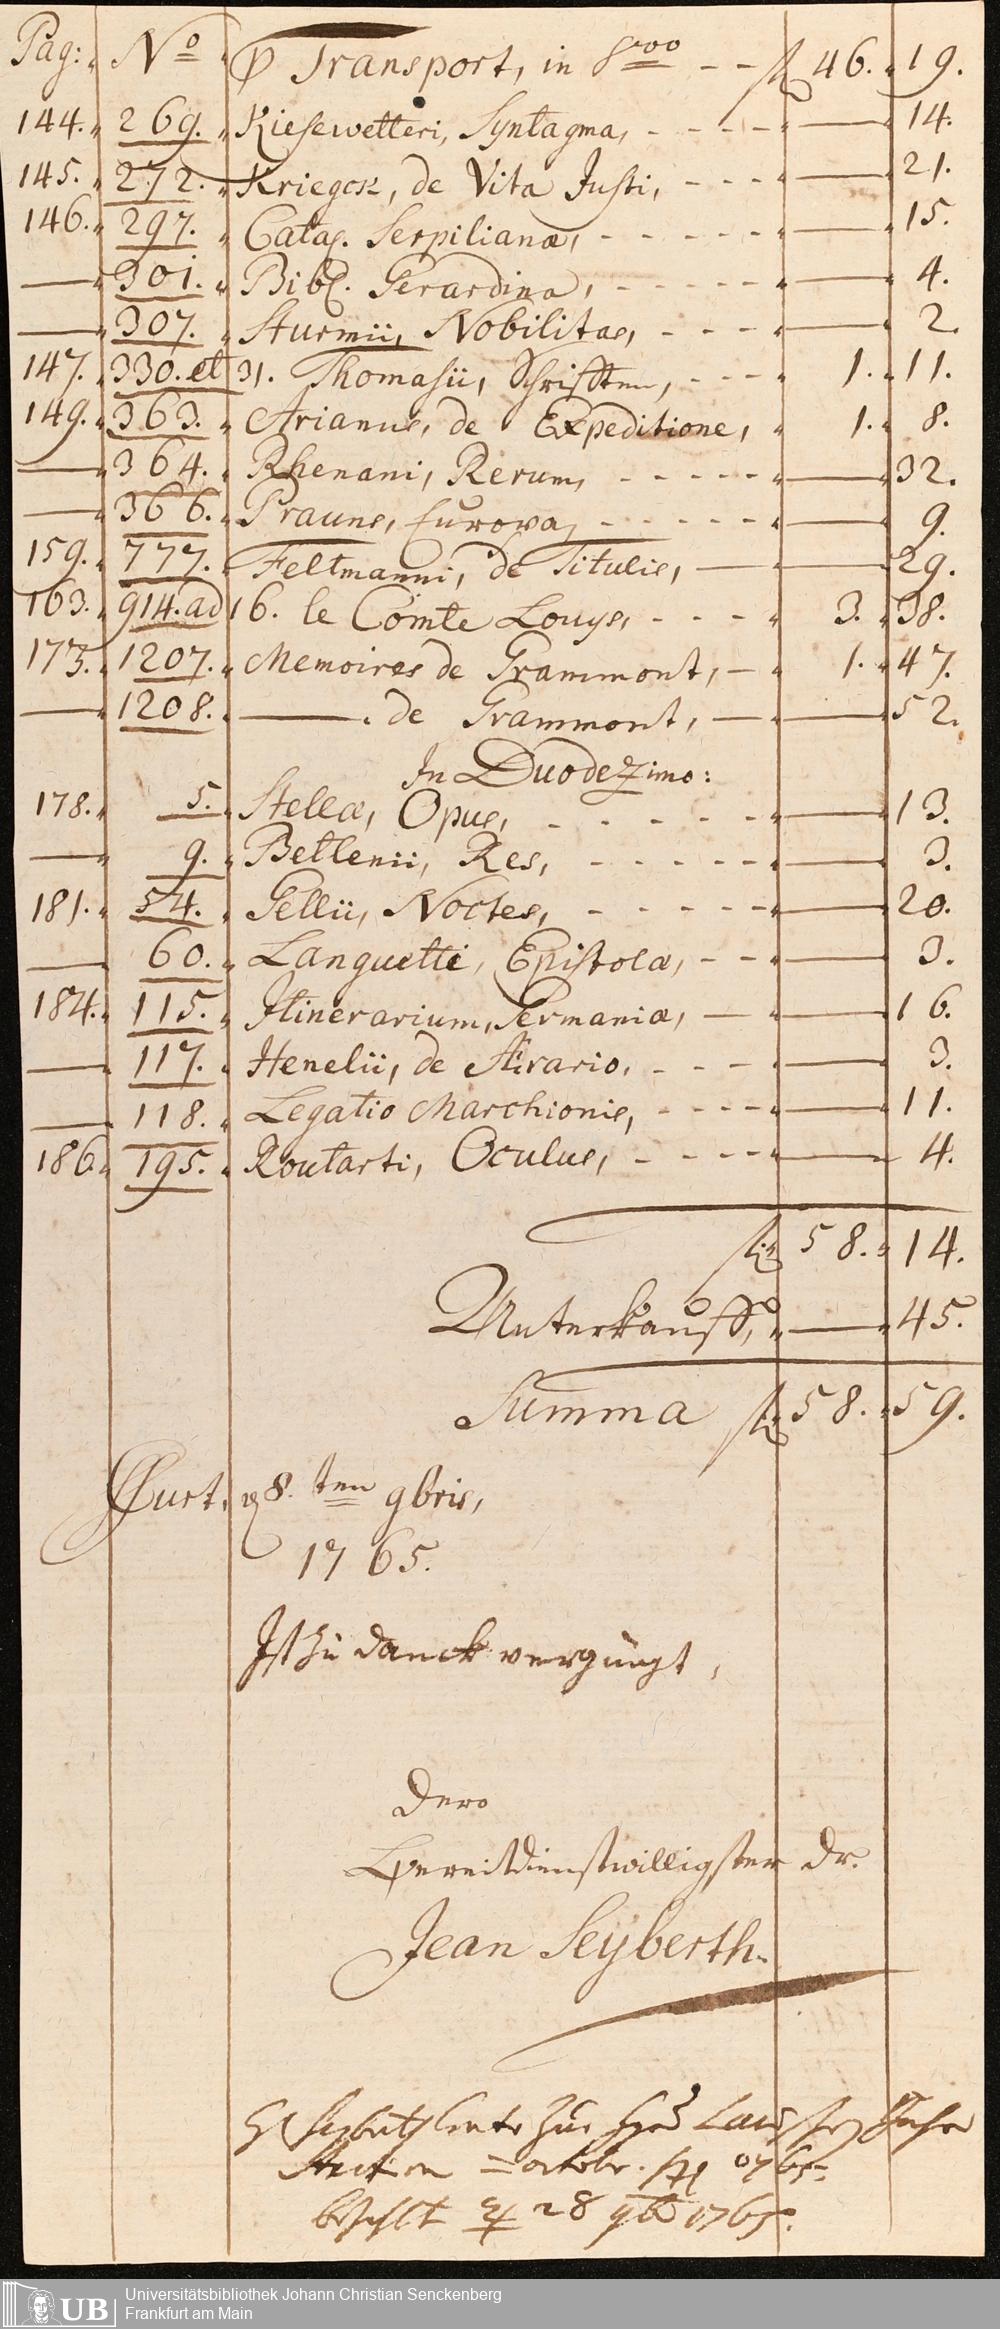 Pag: No ₽ Transport, in 8voo - - f 46. 19.
144. 269. Kiesewetteri, Syntagma, - - - - 14.
145. 272. Kriegck, de Vita Justi, - - - 21.
146. 297. Catal. Serpilianæ, - - - - - - 15.
— 301. Bibl. Gerardina, - - - - - - 4.
— 307. Sturmii, Nobilitas, - - - - 2.
147. 330. et 31. Thomasii, Schrifften, - - - 1. 11.
149. 363. Arianus, de Expeditione, 1. 8.
— 364. Rhenani, Rerum, - - - - - 32.
— 366. Prauns, Europa, - - - - - - 9.
159. 777. Feltmanni, de Titulis, — 29.
163. 914. ad 16. le Comte Louys, - - - - 3. 38.
173. 1207. Memoires de Grammont, — 1. 47.
— 1208. — de Grammont, — 52.
In Duodezimo:
178. 5. Stellæ, Opus, - - - - - - 13.
— 9. Bellenii, Res, - - - - - - 3.
181. 54. Gellii, Noctes, - - - - - - 20.
— 60. Languetti, Epistolæ, - - - 3.
184. 115. Itinerarium, Germaniæ, — 16.
— 117. Henelii, de Ærario, - - - - 3.
— 118. Legatio Marchionis, - - - - 11.
186. 195. Routarti, Oculus, - - - - 4.
f 58. 14.
Unterkauff, — 45.
Summa f 58. 59.
Ffurt, d 8. ten 9bris,
1765.
Ist zu danck vergnügt,
Dero
Bereitdienstwilligster Dr.
Jean Seyberth.
Auction
bezahlt 28 9b 1765.
UB Universitätsbibliothek Johann Christian Senckenberg
Frankfurt am Main